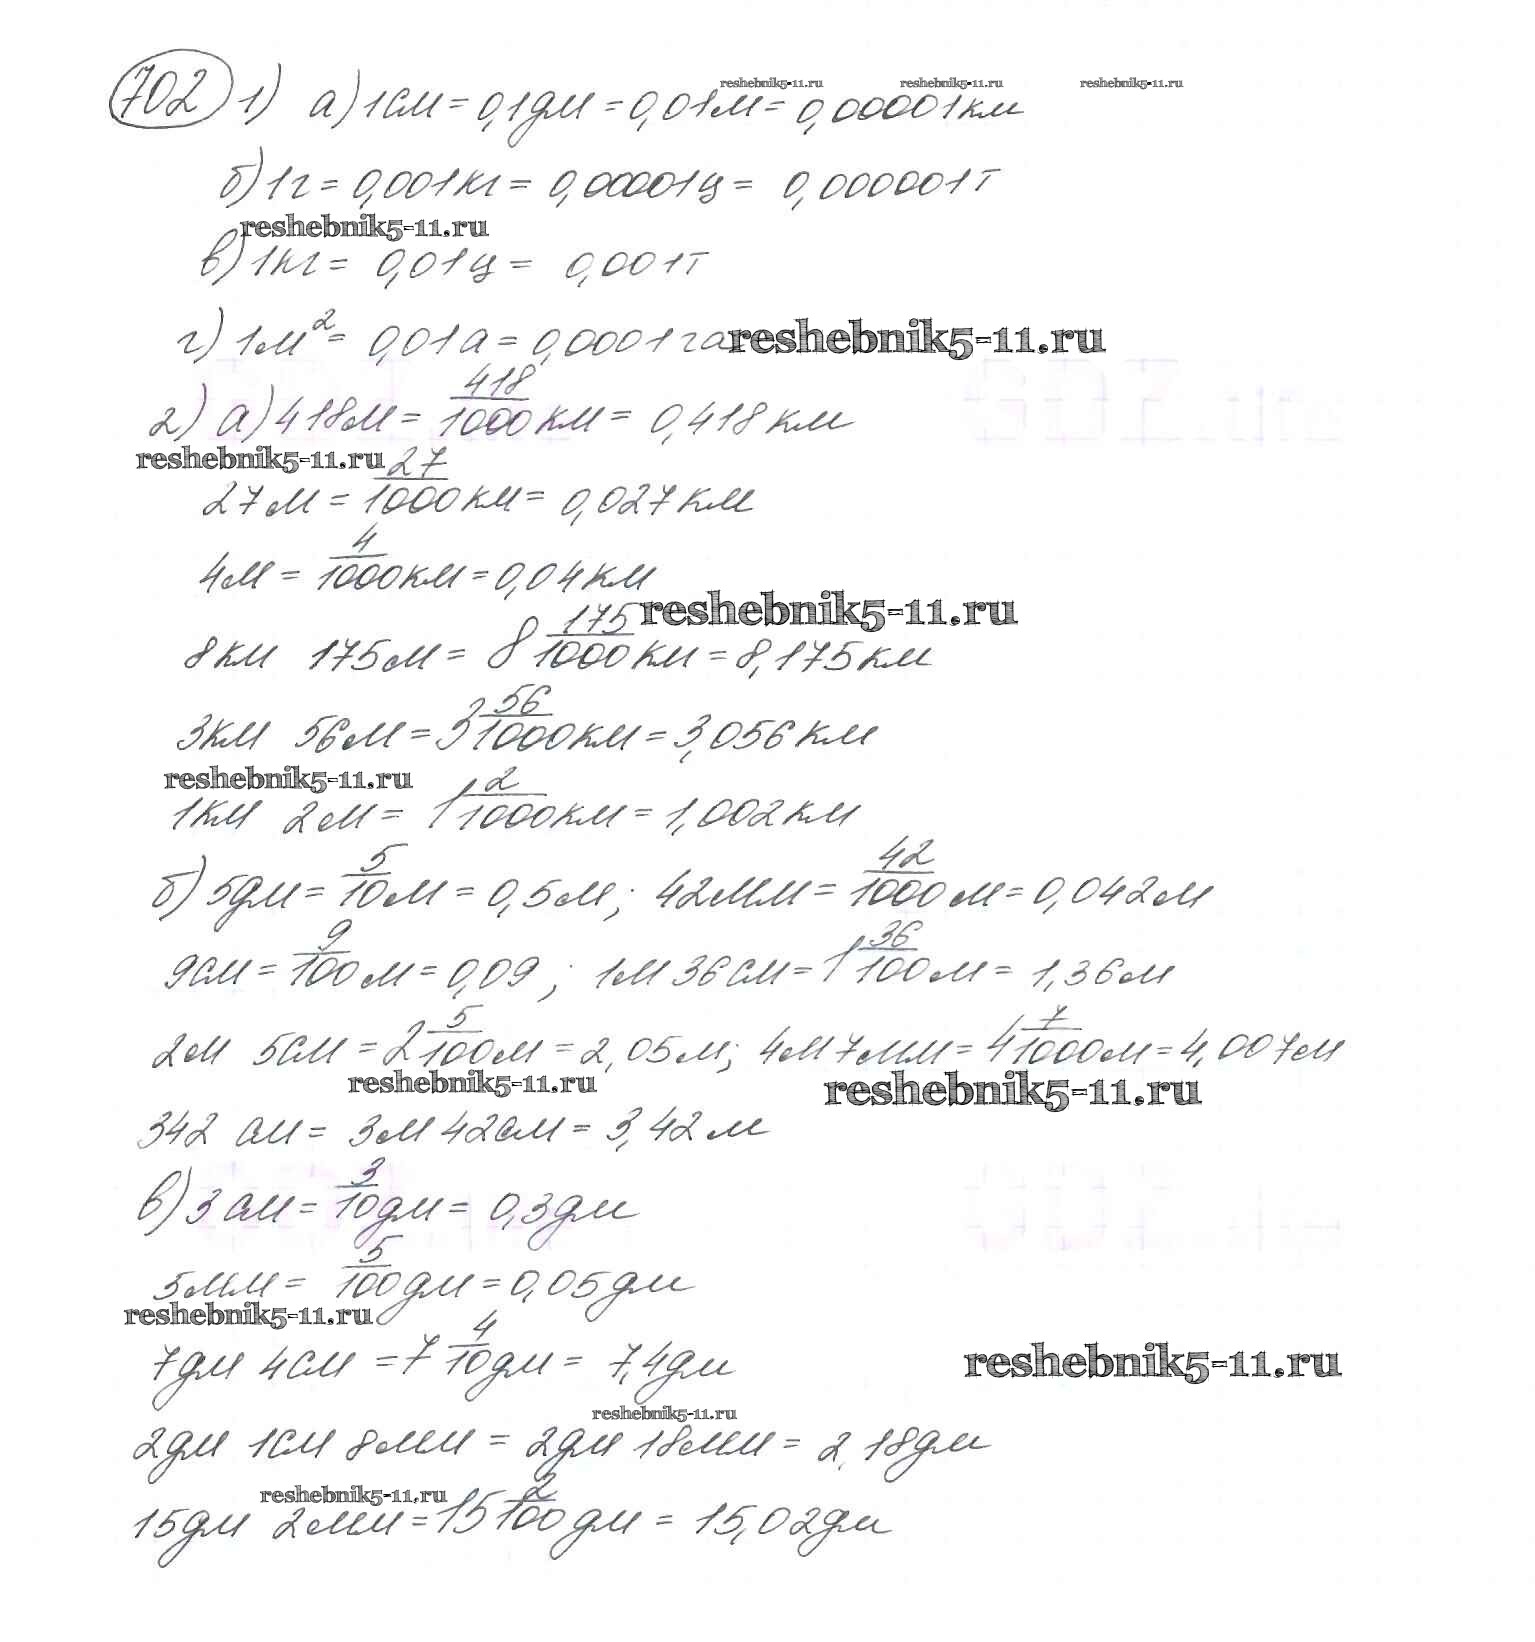 702 1) а) 1см = 0,1дм = 0,01м = 0,00001км
reshebnik5-11.ru reshebnik5-11.ru reshebnik5-11.ru
б) 1г = 0,001кг = 0,00001ц = 0,000001т
reshebnik5-11.ru
в) 1кг = 0,01ц = 0,001т
г) 1м² = 0,01а = 0,0001га
reshebnik5-11.ru
2) а) 418м = 418/1000 км = 0,418км
reshebnik5-11.ru
27м = 27/1000 км = 0,027км
4м = 4/1000 км = 0,04км
reshebnik5-11.ru
8км 175м = 8 175/1000 км = 8,175км
3км 56м = 3 56/1000 км = 3,056км
reshebnik5-11.ru
1км 2м = 1 2/1000 км = 1,002км
б) 5дм = 5/10 м = 0,5м; 42мм = 42/1000 м = 0,042м
9см = 9/100 м = 0,09 ; 1м 36см = 1 36/100 м = 1,36м
2м 5см = 2 5/100 м = 2,05м; 4м 7мм = 4 7/1000 м = 4,007м
reshebnik5-11.ru reshebnik5-11.ru
342 см = 3м 42см = 3,42м
в) 3см = 3/10 дм = 0,3дм
5мм = 5/100 дм = 0,05дм
reshebnik5-11.ru
7дм 4см = 7 4/10 дм = 7,4дм
reshebnik5-11.ru
reshebnik5-11.ru
2дм 1см 8мм = 2дм 18мм = 2,18дм
reshebnik5-11.ru
15дм 2мм = 15 2/100 дм = 15,02дм